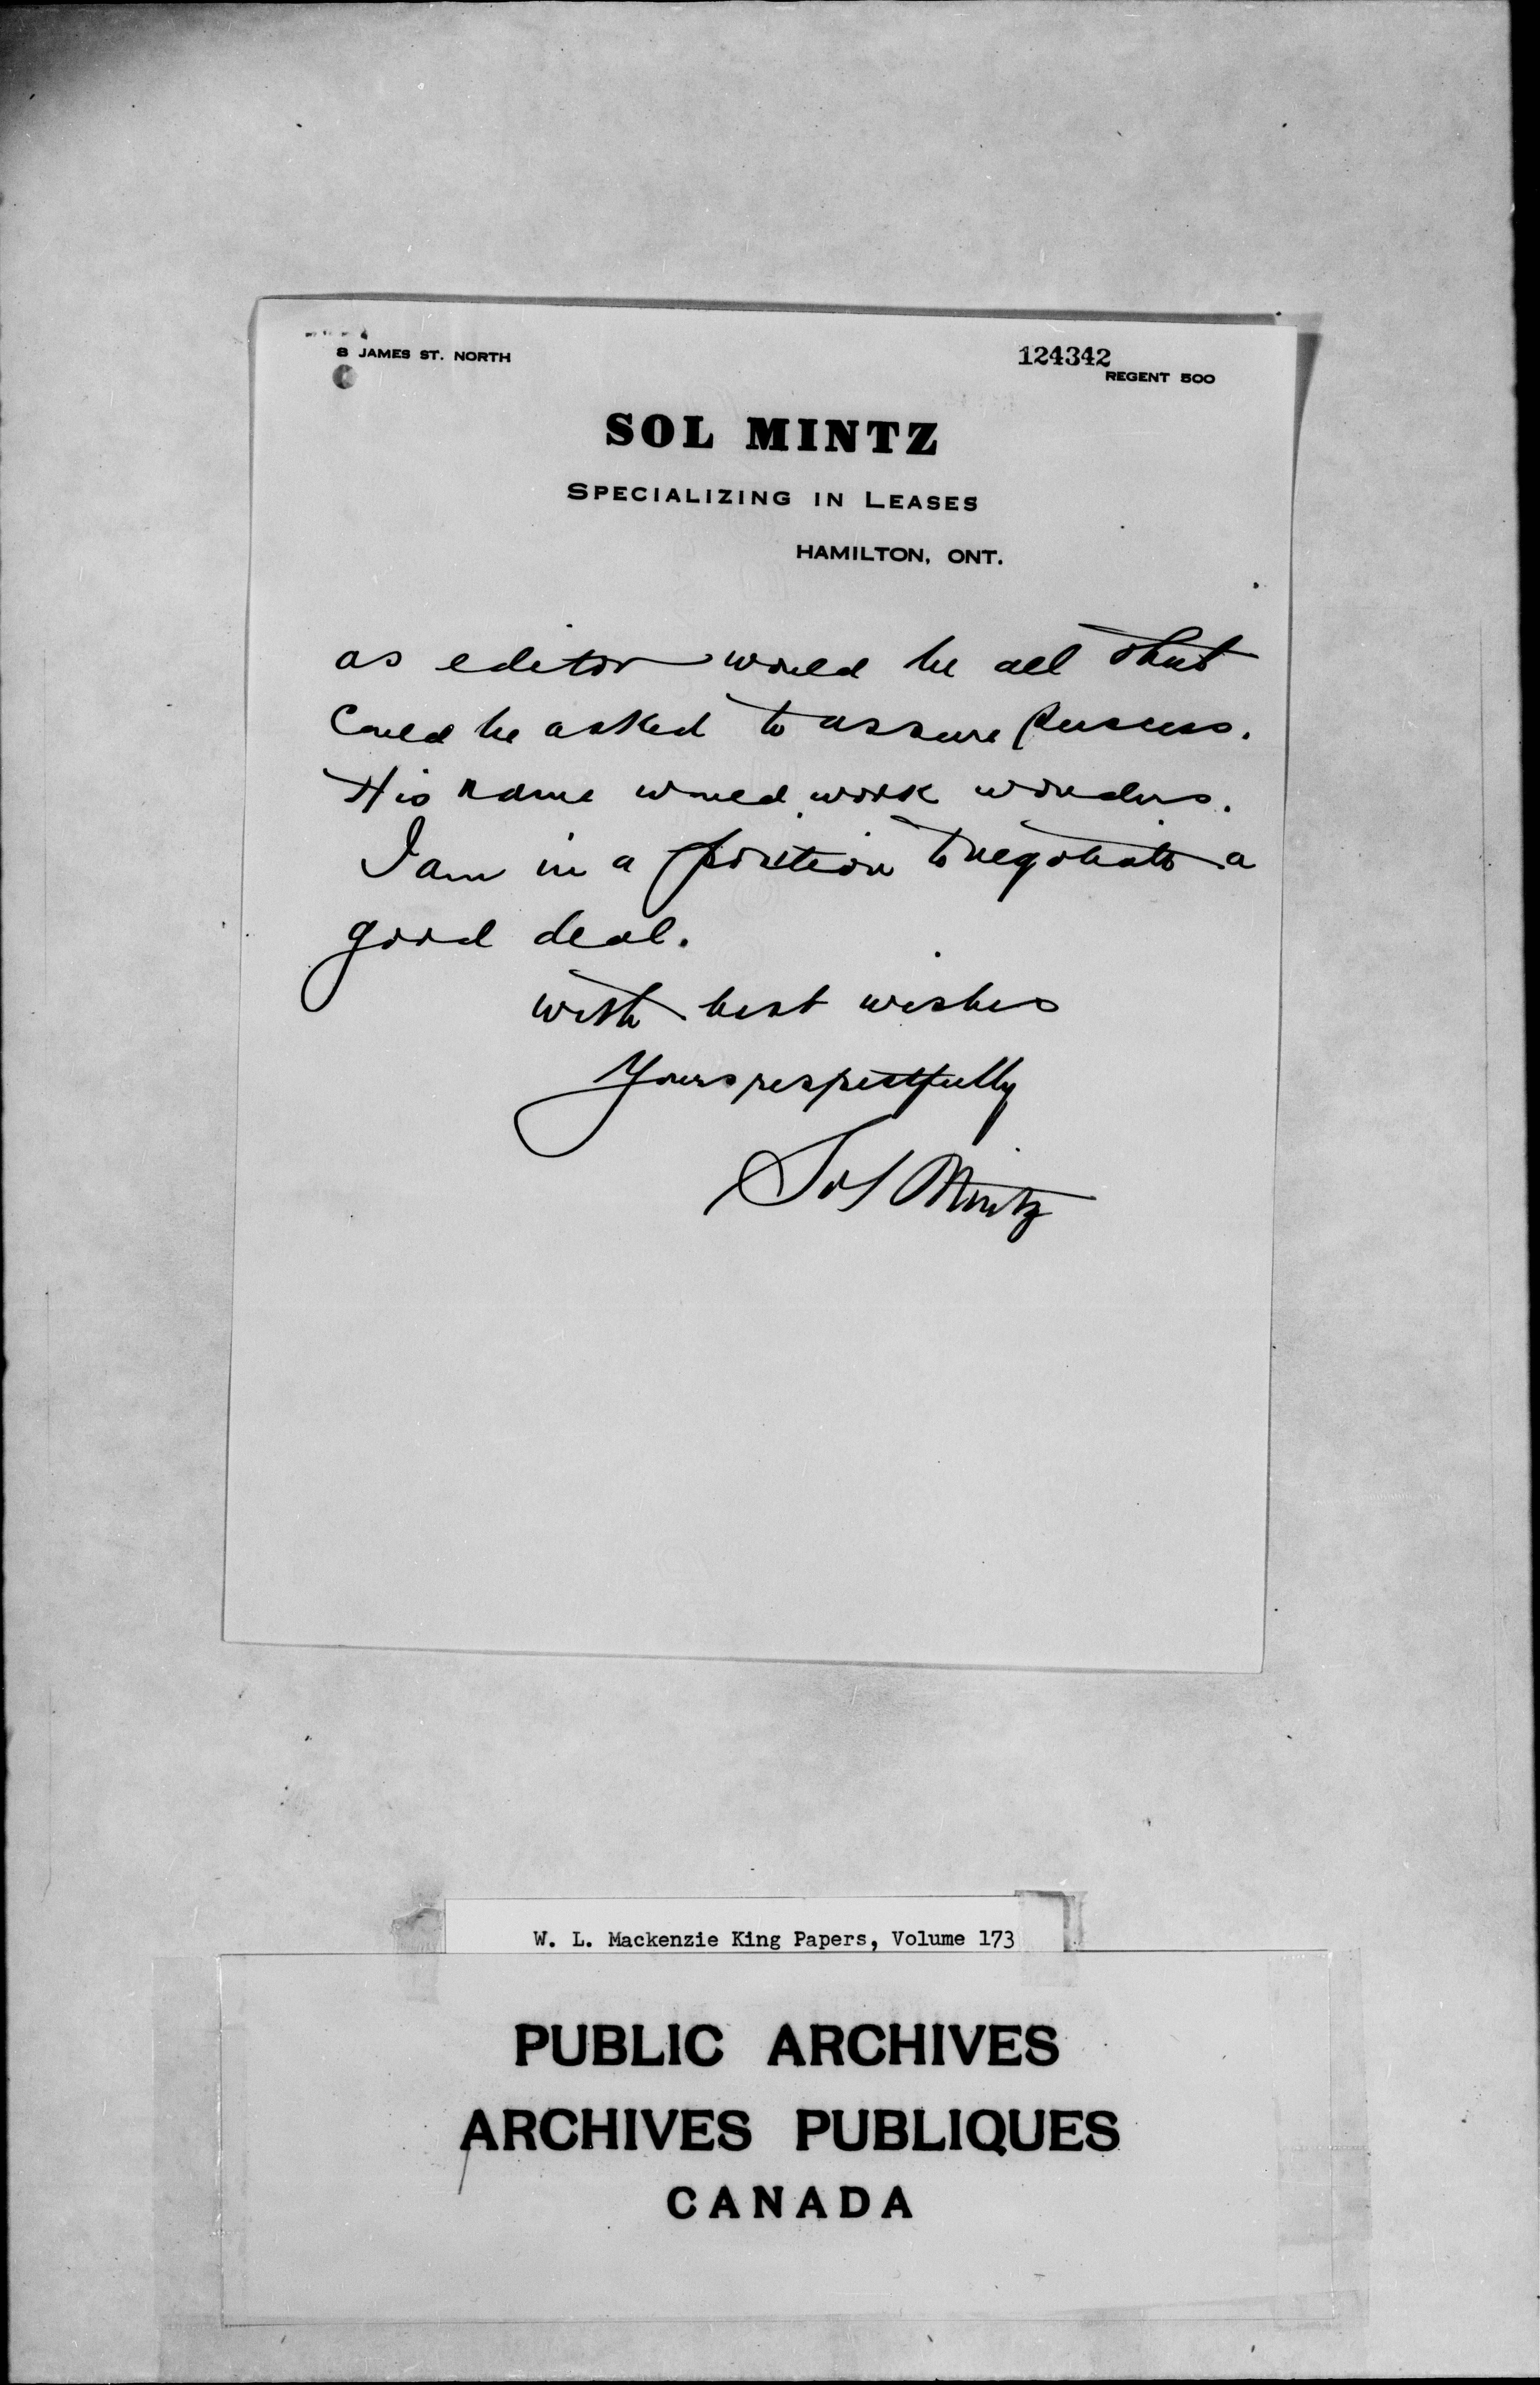 8 JAMES ST. NORTH
124342
REGENT 500
SOL MINTZ
SPECIALIZING IN LEASES
HAMILTON, ONT.
as editor would be all that
Could be asked to assure success.
His name would work wonders.
I am in a position to negotiate a
good deal.
with best wishes
Yours respectfully
Sol Mintz
W. L. Mackenzie King Papers, Volume 173
PUBLIC ARCHIVES
ARCHIVES PUBLIQUES
CANADA